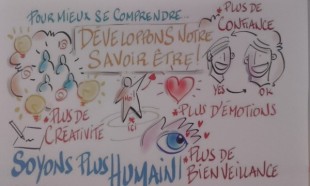 POUR MIEUX SE COMPRENDRE...
DÉVELOPPONS NOTRE
SAVOIR ÊTRE!
* PLUS DE
CONFIANCE
YES
OK
ICI
* PLUS DE
CRÉATIVITÉ
* PLUS D'ÉMOTIONS
SOYONS PLUS HUMAIN!
* PLUS DE
BIENVEILLANCE